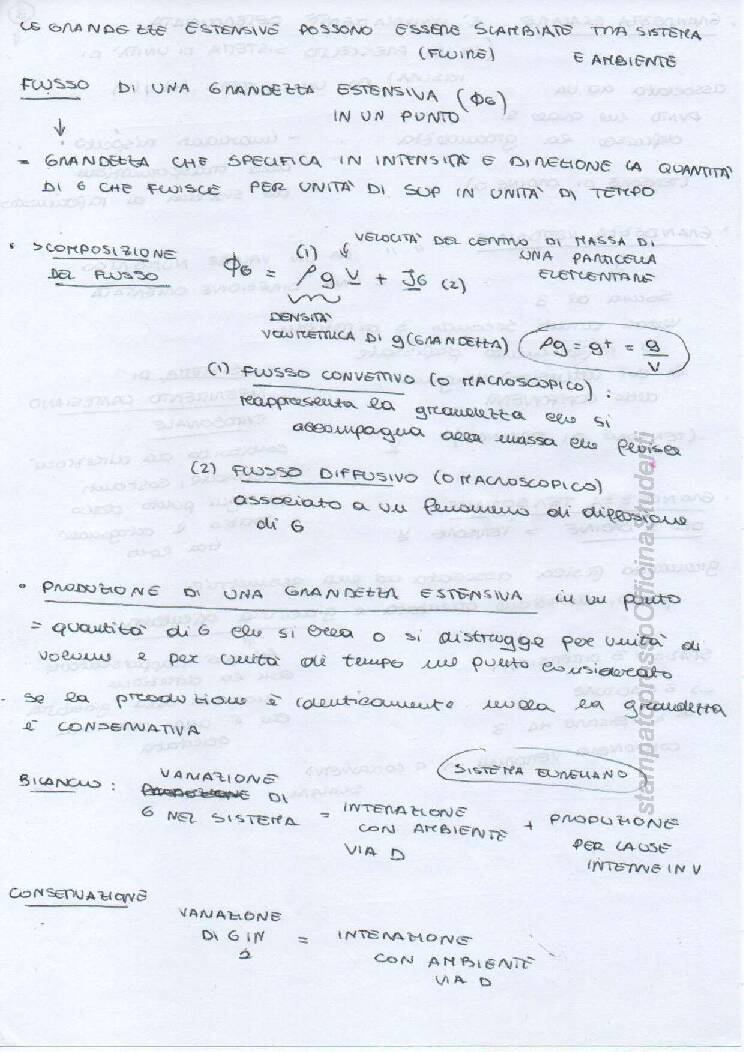 LE GRANDEZZE ESTENSIVE POSSONO ESSERE SCAMBIATE TRA SISTEMA
(FLUIRE) E AMBIENTE
FLUSSO DI UNA GRANDEZZA ESTENSIVA (ϕG)
IN UN PUNTO
↓
= GRANDEZZA CHE SPECIFICA IN INTENSITA' E DIREZIONE LA QUANTITA'
DI G CHE FLUISCE PER UNITA' DI SUP IN UNITA' DI TEMPO
• SCOMPOSIZIONE
DEL FLUSSO
(1) VELOCITA' DEL CENTRO DI MASSA DI
UNA PARTICELLA
ELEMENTARE
ϕG = ρg V + JG (2)
DENSITA'
VOLUMETRICA DI g(GRANDEZZA) ρg = g+ = g/V
(1) FLUSSO CONVETTIVO (O MACROSCOPICO) :
rappresenta la grandezza che si
accompagna alla massa che fluisce
(2) FLUSSO DIFFUSIVO (O MACROSCOPICO)
associato a un fenomeno di diffusione
di G
• PRODUZIONE DI UNA GRANDEZZA ESTENSIVA in un punto
= quantità di G che si crea o si distrugge per unità di
volume e per unità di tempo nel punto considerato
- se la produzione è identicamente nulla la grandezza
è CONSERVATIVA
SISTEMA EULERIANO
BILANCIO : VARIAZIONE
PRODUZIONE DI
G NEL SISTEMA = INTERAZIONE
CON AMBIENTE
VIA D
+ PRODUZIONE
PER CAUSE
INTERNE IN V
CONSERVAZIONE
VARIAZIONE
DI G IN
= INTERAZIONE
CON AMBIENTE
VIA D
stampato presso Officina Studenti